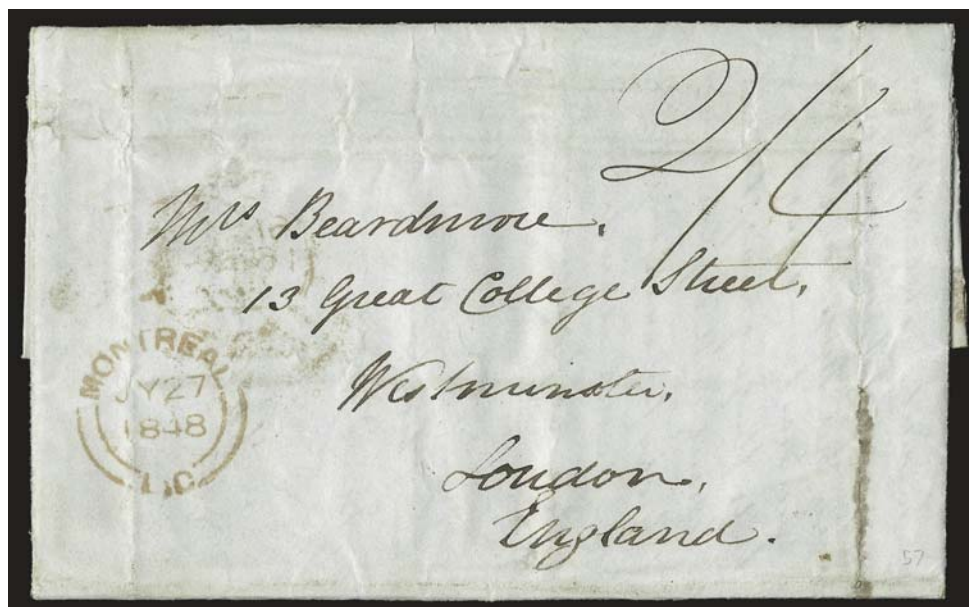 2/4
Mrs Beardmore.
13 Great College Street,
Westminster,
London,
England.
MONTREAL
JY 27
1848
L.C.
57